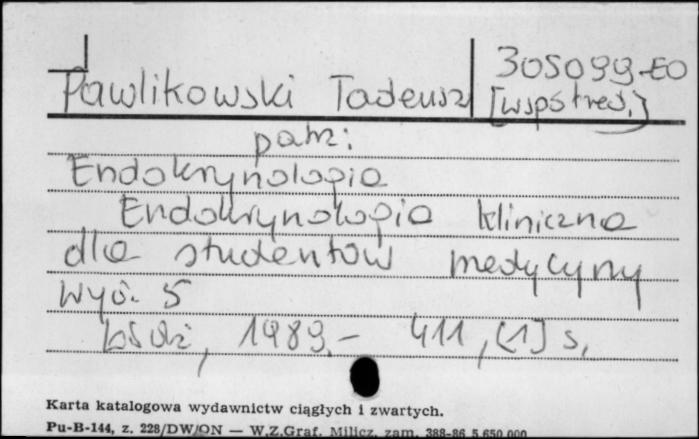 305099-EO
Pawlikowski Tadeusz [współred.]
patrz:
Endokrynologia
Endokrynologia kliniczna
dla studentów medycyny
Wyd. 5
Łódź, 1989.- 411, [1] s.
Karta katalogowa wydawnictw ciągłych i zwartych.
Pu-B-144, z. 228/DW/ON — W.Z.Graf. Milicz, zam. 388-86 5.650.000